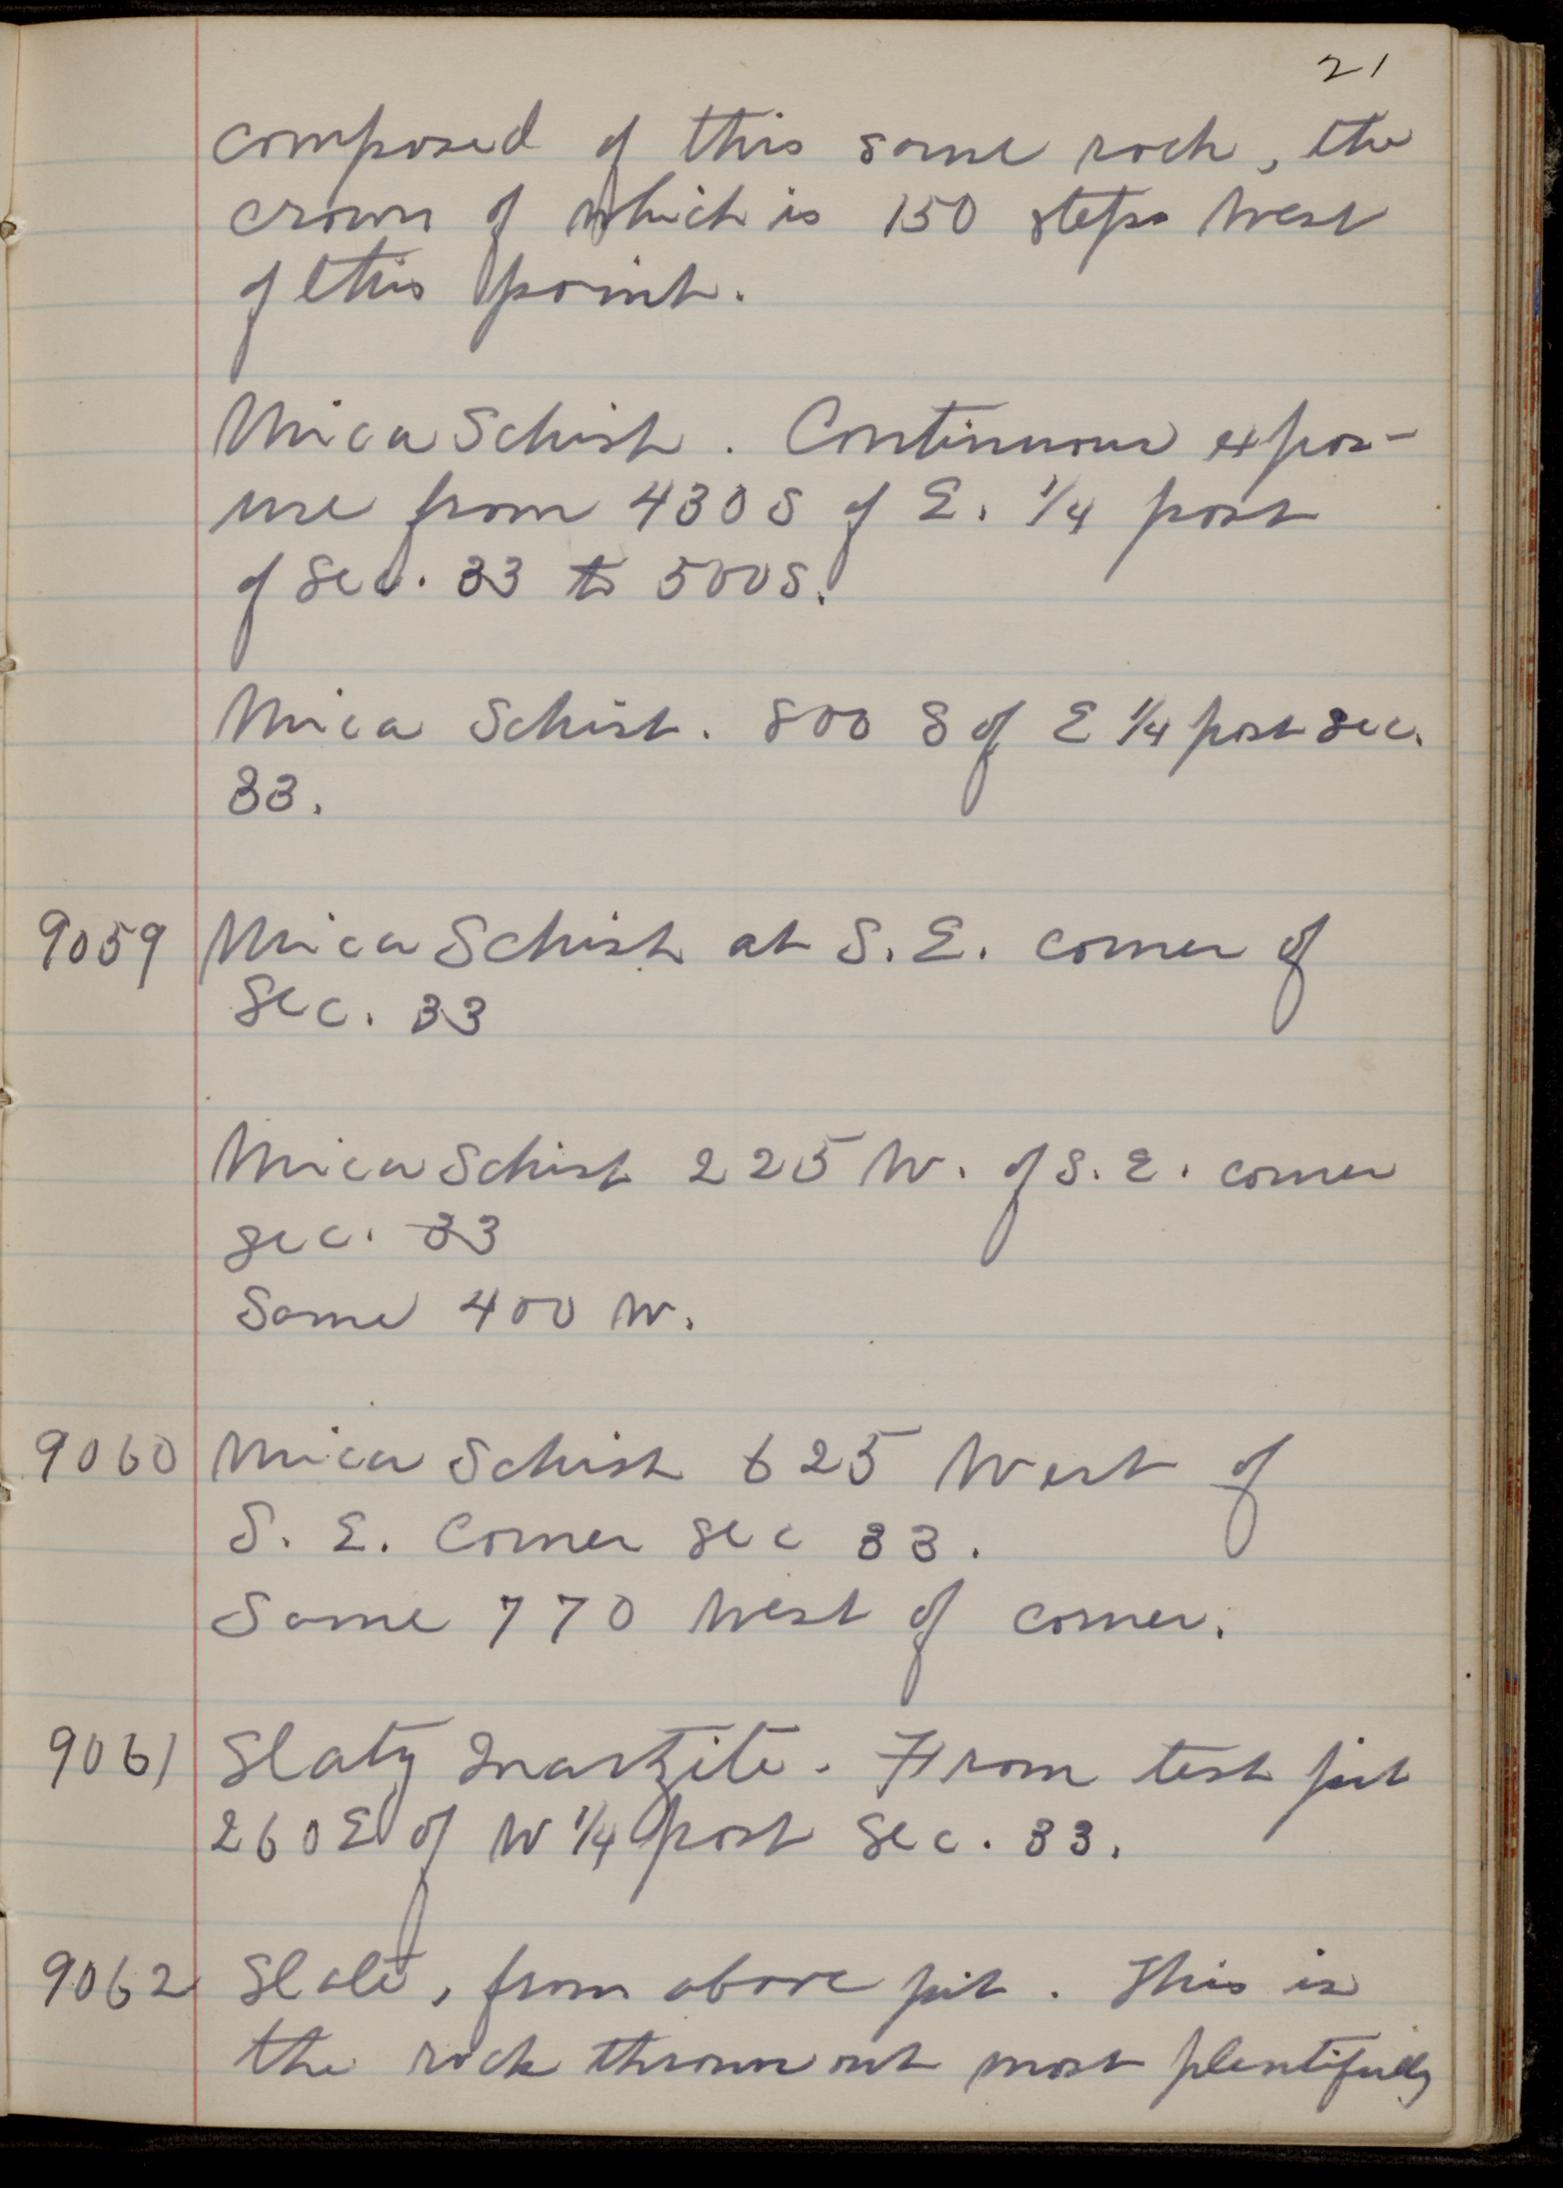 21
composed of this same rock, the
crown of which is 150 steps West
of this point.
Mica Schist. Continuous expos-
ure from 430 S of E. 1/4 post
of Sec. 33 to 500 S.
Mica Schist. 800 S of E 1/4 post Sec.
33.
9059 Mica Schist at S. E. corner of
Sec. 33
Mica Schist 225 W. of S. E. corner
Sec. 33
Same 400 W.
9060 Mica Schist 625 West of
S. E. Corner Sec 33.
Same 770 West of corner.
9061 Slaty Quartzite. From test pit
260 E of W 1/4 post Sec. 33.
9062 Slate, from above pit. This is
the rock thrown out most plentifully